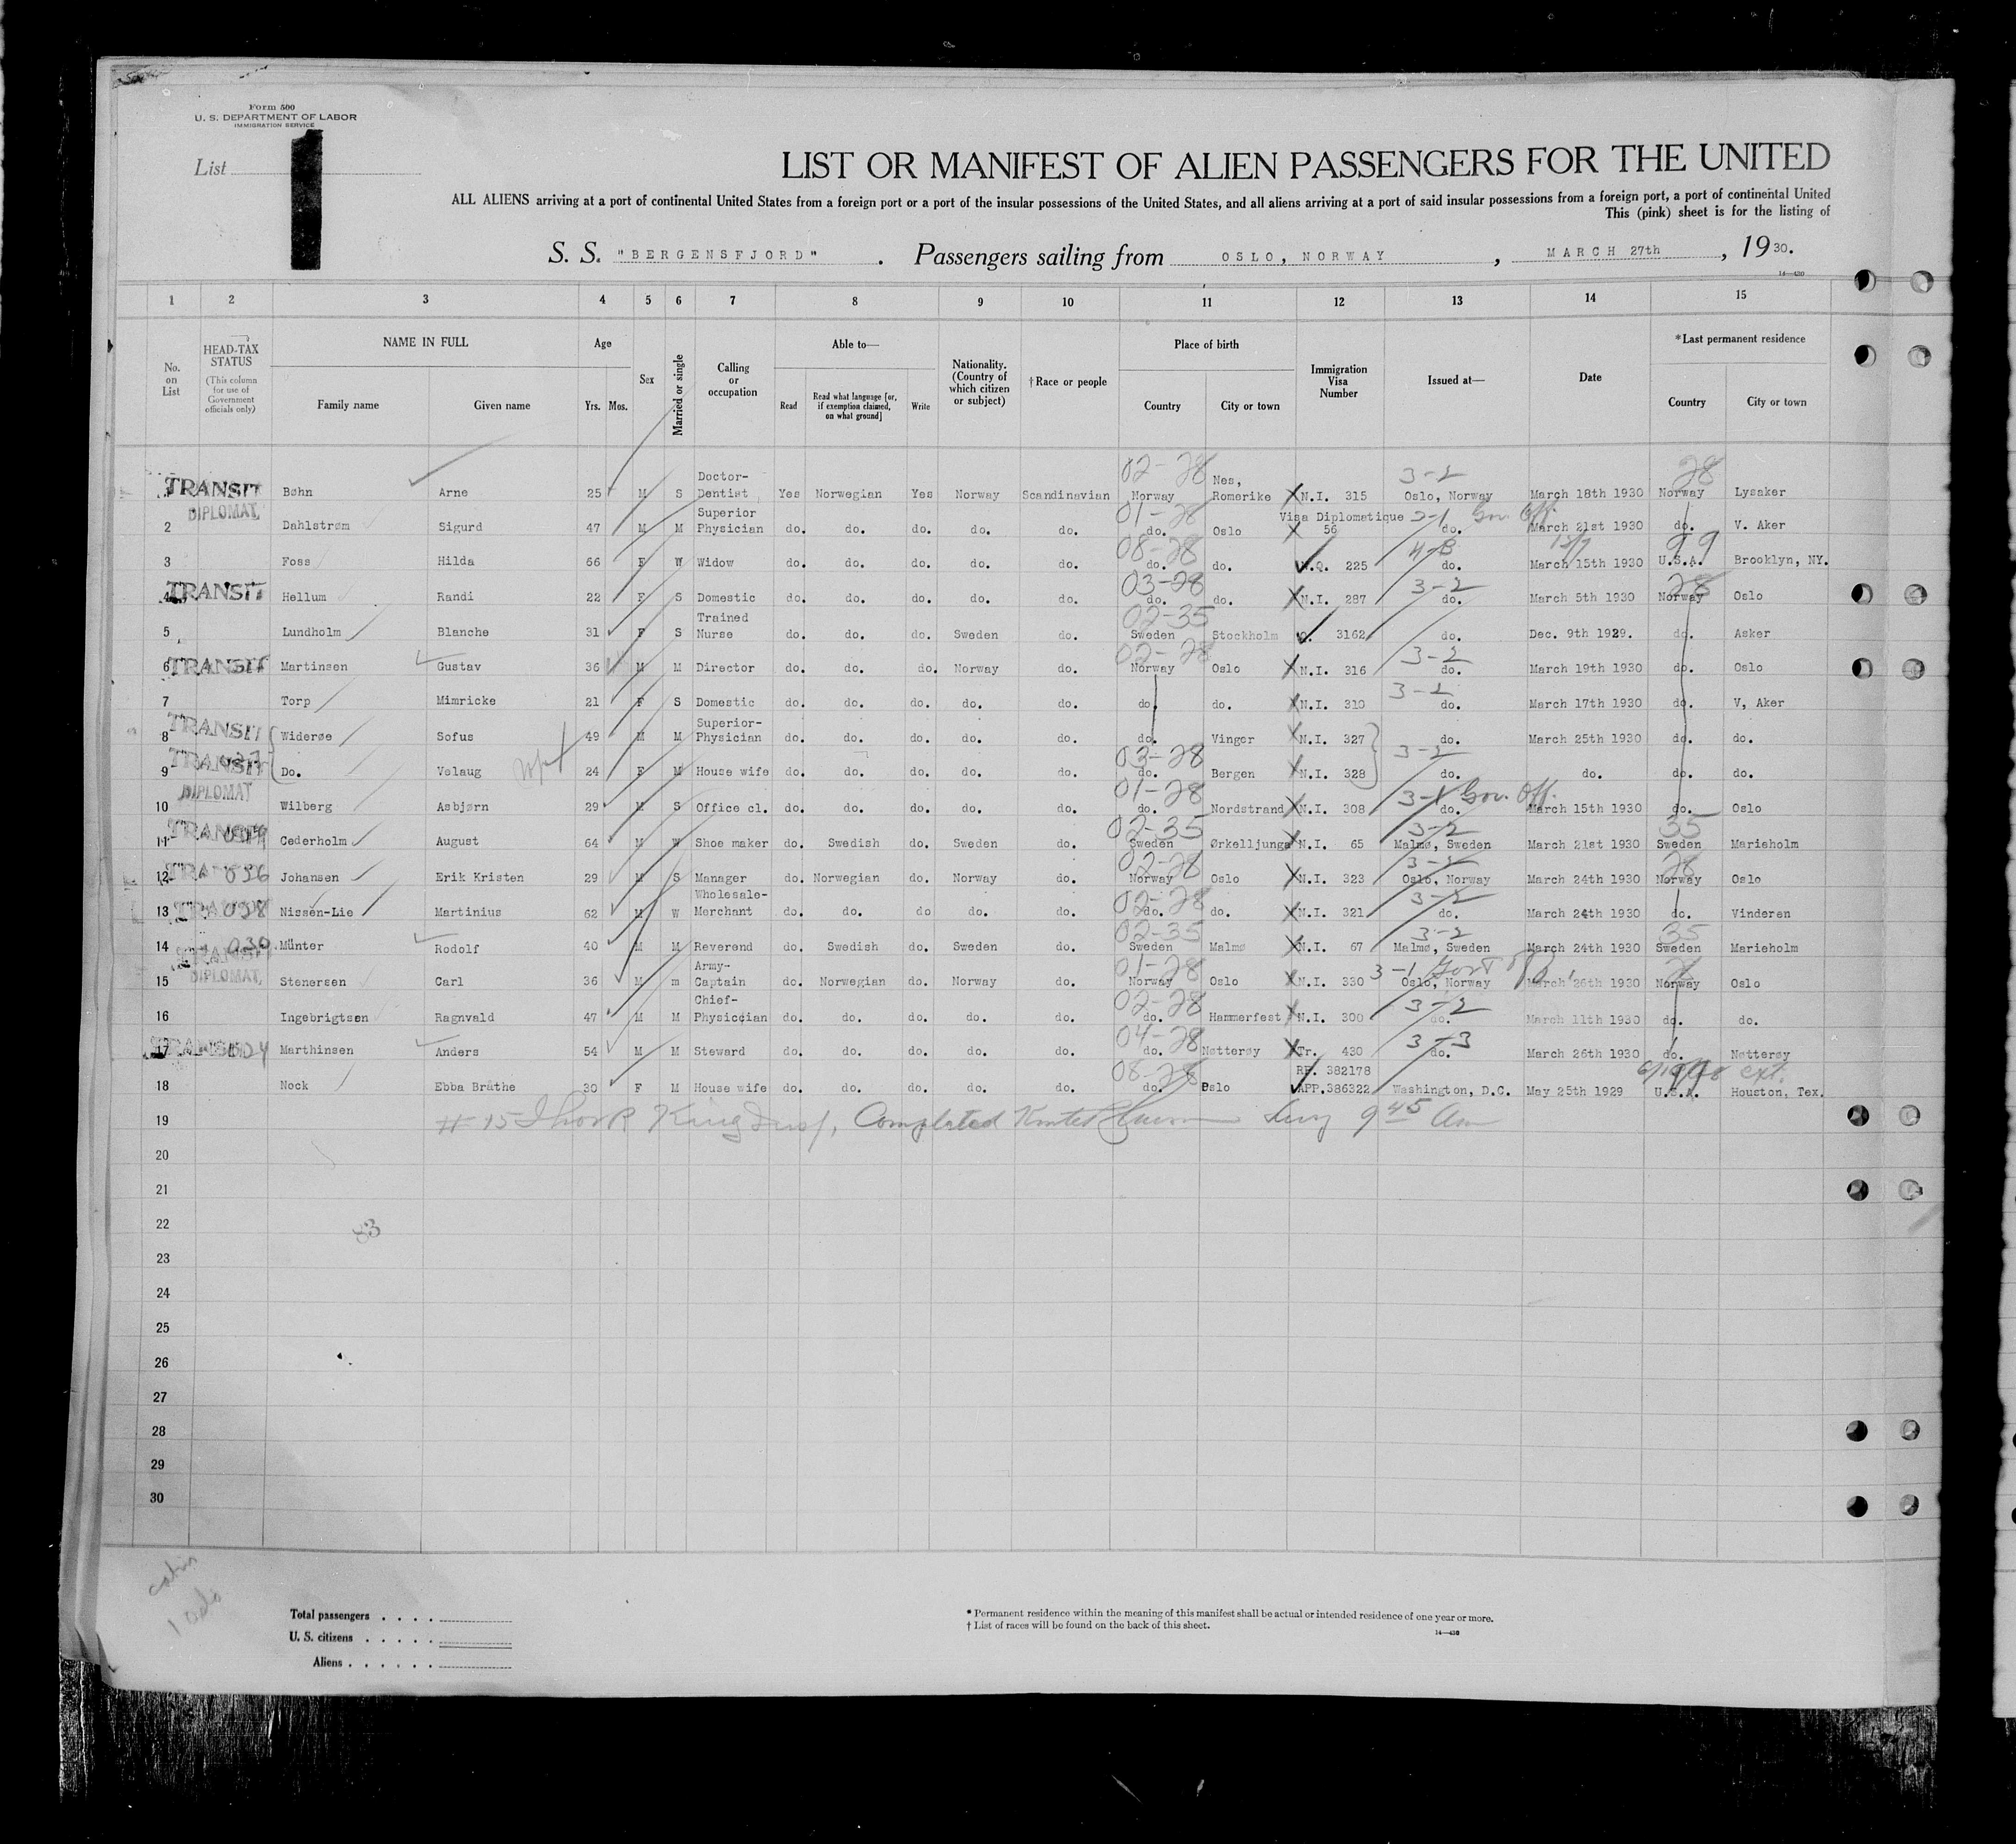 Form 500
U. S. DEPARTMENT OF LABOR
IMMIGRATION SERVICE
List 1
LIST OR MANIFEST OF ALIEN PASSENGERS FOR THE UNITED
ALL ALIENS arriving at a port of continental United States from a foreign port or a port of the insular possessions of the United States, and all aliens arriving at a port of said insular possessions from a foreign port, a port of continental United
This (pink) sheet is for the listing of
S. S. "BERGENSFJORD". Passengers sailing from OSLO, NORWAY, MARCH 27th, 1930.
14—430
1 2 3 4 5 6 7 8 9 10 11 12 13 14 15
No. on List HEAD-TAX STATUS (This column for use of Government officials only) NAME IN FULL Family name Given name Age Yrs. Mos. Sex Married or single Calling or occupation Able to— Read Read what language [or, if exemption claimed, on what ground] Write Nationality. (Country of which citizen or subject) †Race or people Place of birth Country City or town Immigration Visa Number Issued at— Date *Last permanent residence Country City or town
02-28 3-2 28
1 TRANSIT Bøhn Arne 25 M S Doctor-Dentist Yes Norwegian Yes Norway Scandinavian Norway Nes, Romerike N.I. 315 Oslo, Norway March 18th 1930 Norway Lysaker
01-28 Gov. Off.
2 DIPLOMAT, Dahlstrøm Sigurd 47 M M Superior Physician do. do. do. do. do. do. Oslo Visa Diplomatique 56 do. March 21st 1930 do. V. Aker
08-28 4-3 99
3 Foss Hilda 66 F W Widow do. do. do. do. do. do. do. N.Q. 225 do. March 15th 1930 U.S.A. Brooklyn, NY.
03-28 3-2 28
4 TRANSIT Hellum Randi 22 F S Domestic do. do. do. do. do. do. do. N.I. 287 do. March 5th 1930 Norway Oslo
02-35
5 Lundholm Blanche 31 F S Trained Nurse do. do. do. Sweden do. Sweden Stockholm Q. 3162 do. Dec. 9th 1929. do. Asker
02-28 3-2
6 TRANSIT Martinsen Gustav 36 M M Director do. do. do. Norway do. Norway Oslo N.I. 316 do. March 19th 1930 do. Oslo
3-2
7 Torp Mimricke 21 F S Domestic do. do. do. do. do. do. do. N.I. 310 do. March 17th 1930 do. V, Aker
8 TRANSIT Widerøe Sofus 49 M M Superior-Physician do. do. do. do. do. do. Vinger N.I. 327 do. March 25th 1930 do. do.
03-28 3-2
9 TRANSIT Do. Velaug 24 F M House wife do. do. do. do. do. do. Bergen N.I. 328 do. do. do. do.
01-28 3-1 Gov. Off.
10 DIPLOMAT Wilberg Asbjørn 29 M S Office cl. do. do. do. do. do. do. Nordstrand N.I. 308 do. March 15th 1930 do. Oslo
02-35 3-2 35
11 TRANSIT Cederholm August 64 M W Shoe maker do. Swedish do. Sweden do. Sweden Ørkelljunga N.I. 65 Malmø, Sweden March 21st 1930 Sweden Marieholm
02-28 3-2 28
12 TRANSIT 036 Johansen Erik Kristen 29 M S Manager do. Norwegian do. Norway do. Norway Oslo N.I. 323 Oslo, Norway March 24th 1930 Norway Oslo
02-28 3-2
13 TRANSIT 028 Nissen-Lie Martinius 62 M W Wholesale-Merchant do. do. do do. do. do. do. N.I. 321 do. March 24th 1930 do. Vinderen
02-35 3-2 35
14 TRANSIT 030 Münter Rodolf 40 M M Reverend do. Swedish do. Sweden do. Sweden Malmø N.I. 67 Malmø, Sweden March 24th 1930 Sweden Marieholm
01-28 3-1
15 DIPLOMAT, Stenersen Carl 36 M m Army-Captain do. Norwegian do. Norway do. Norway Oslo N.I. 330 Oslo, Norway March 26th 1930 Norway Oslo
02-28 3-2
16 Ingebrigtsen Ragnvald 47 M M Chief-Physician do. do. do. do. do. do. Hammerfest N.I. 300 do. March 11th 1930 do. do.
04-28 3-3
17 TRANSIT Marthinsen Anders 54 M M Steward do. do. do. do. do. do. Nøtterøy Tr. 430 do. March 26th 1930 do. Nøtterøy
08-28 ext.
18 Nock Ebba Bråthe 30 F M House wife do. do. do. do. do. do. Oslo RP. 382178 APP.386322 Washington, D.C. May 25th 1929 U.S.A. Houston, Tex.
19 # 15 Completed 9 45 Am
20
21
22
83
23
24
25
26
27
28
29
30
Total passengers . . . .
U. S. citizens . . . . .
Aliens . . . . . .
* Permanent residence within the meaning of this manifest shall be actual or intended residence of one year or more.
† List of races will be found on the back of this sheet.
14—430